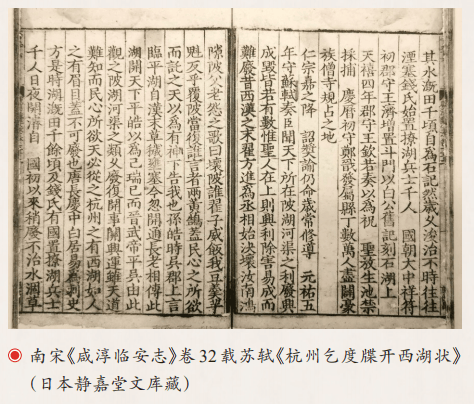 其水溉田千頃自為石記然歲久浚治不時往往
湮塞錢氏始置撩湖兵士千人 國朝大中祥符
初郡守王濟增置斗門以白公舊記刻石湖上
天禧四年郡守王欽若奏以為祝 聖放生池禁
採捕 慶曆初守鄭戩發屬縣丁數萬人盡闢豪
族僧寺規占之地
仁宗嘉之降 詔獎諭仍命歲常修導 元祐五
年守蘇軾奏臣聞天下所在陂湖河渠之利廢興
成毀皆若有數惟聖人在上則興利除害易成而
難廢昔西漢之末翟方進為丞相始決壞汝南鴻
隙陂父老怨之歌曰壞陂誰翟子威飯我豆羹芋
魁反乎覆陂當復誰言者兩黃鵠蓋民心之所欲
而託之天以為有神下告我也孫皓時吳郡上言
臨平湖自漢末草穢壅塞今忽開通長老相傳此
湖開天下平皓以為己瑞已而晉武帝平吳由此
觀之陂湖河渠之類久廢復開事關興運雖天道
難知而民心所欲天必從之杭州之有西湖如人
之有眉目蓋不可廢也唐長慶中白居易為刺史
方是時湖溉田千餘頃及錢氏有國置撩湖兵士
千人日夜開濬自 國初以來稍廢不治水涸草
南宋《咸淳临安志》卷32载苏轼《杭州乞度牒开西湖状》
(日本静嘉堂文库藏)